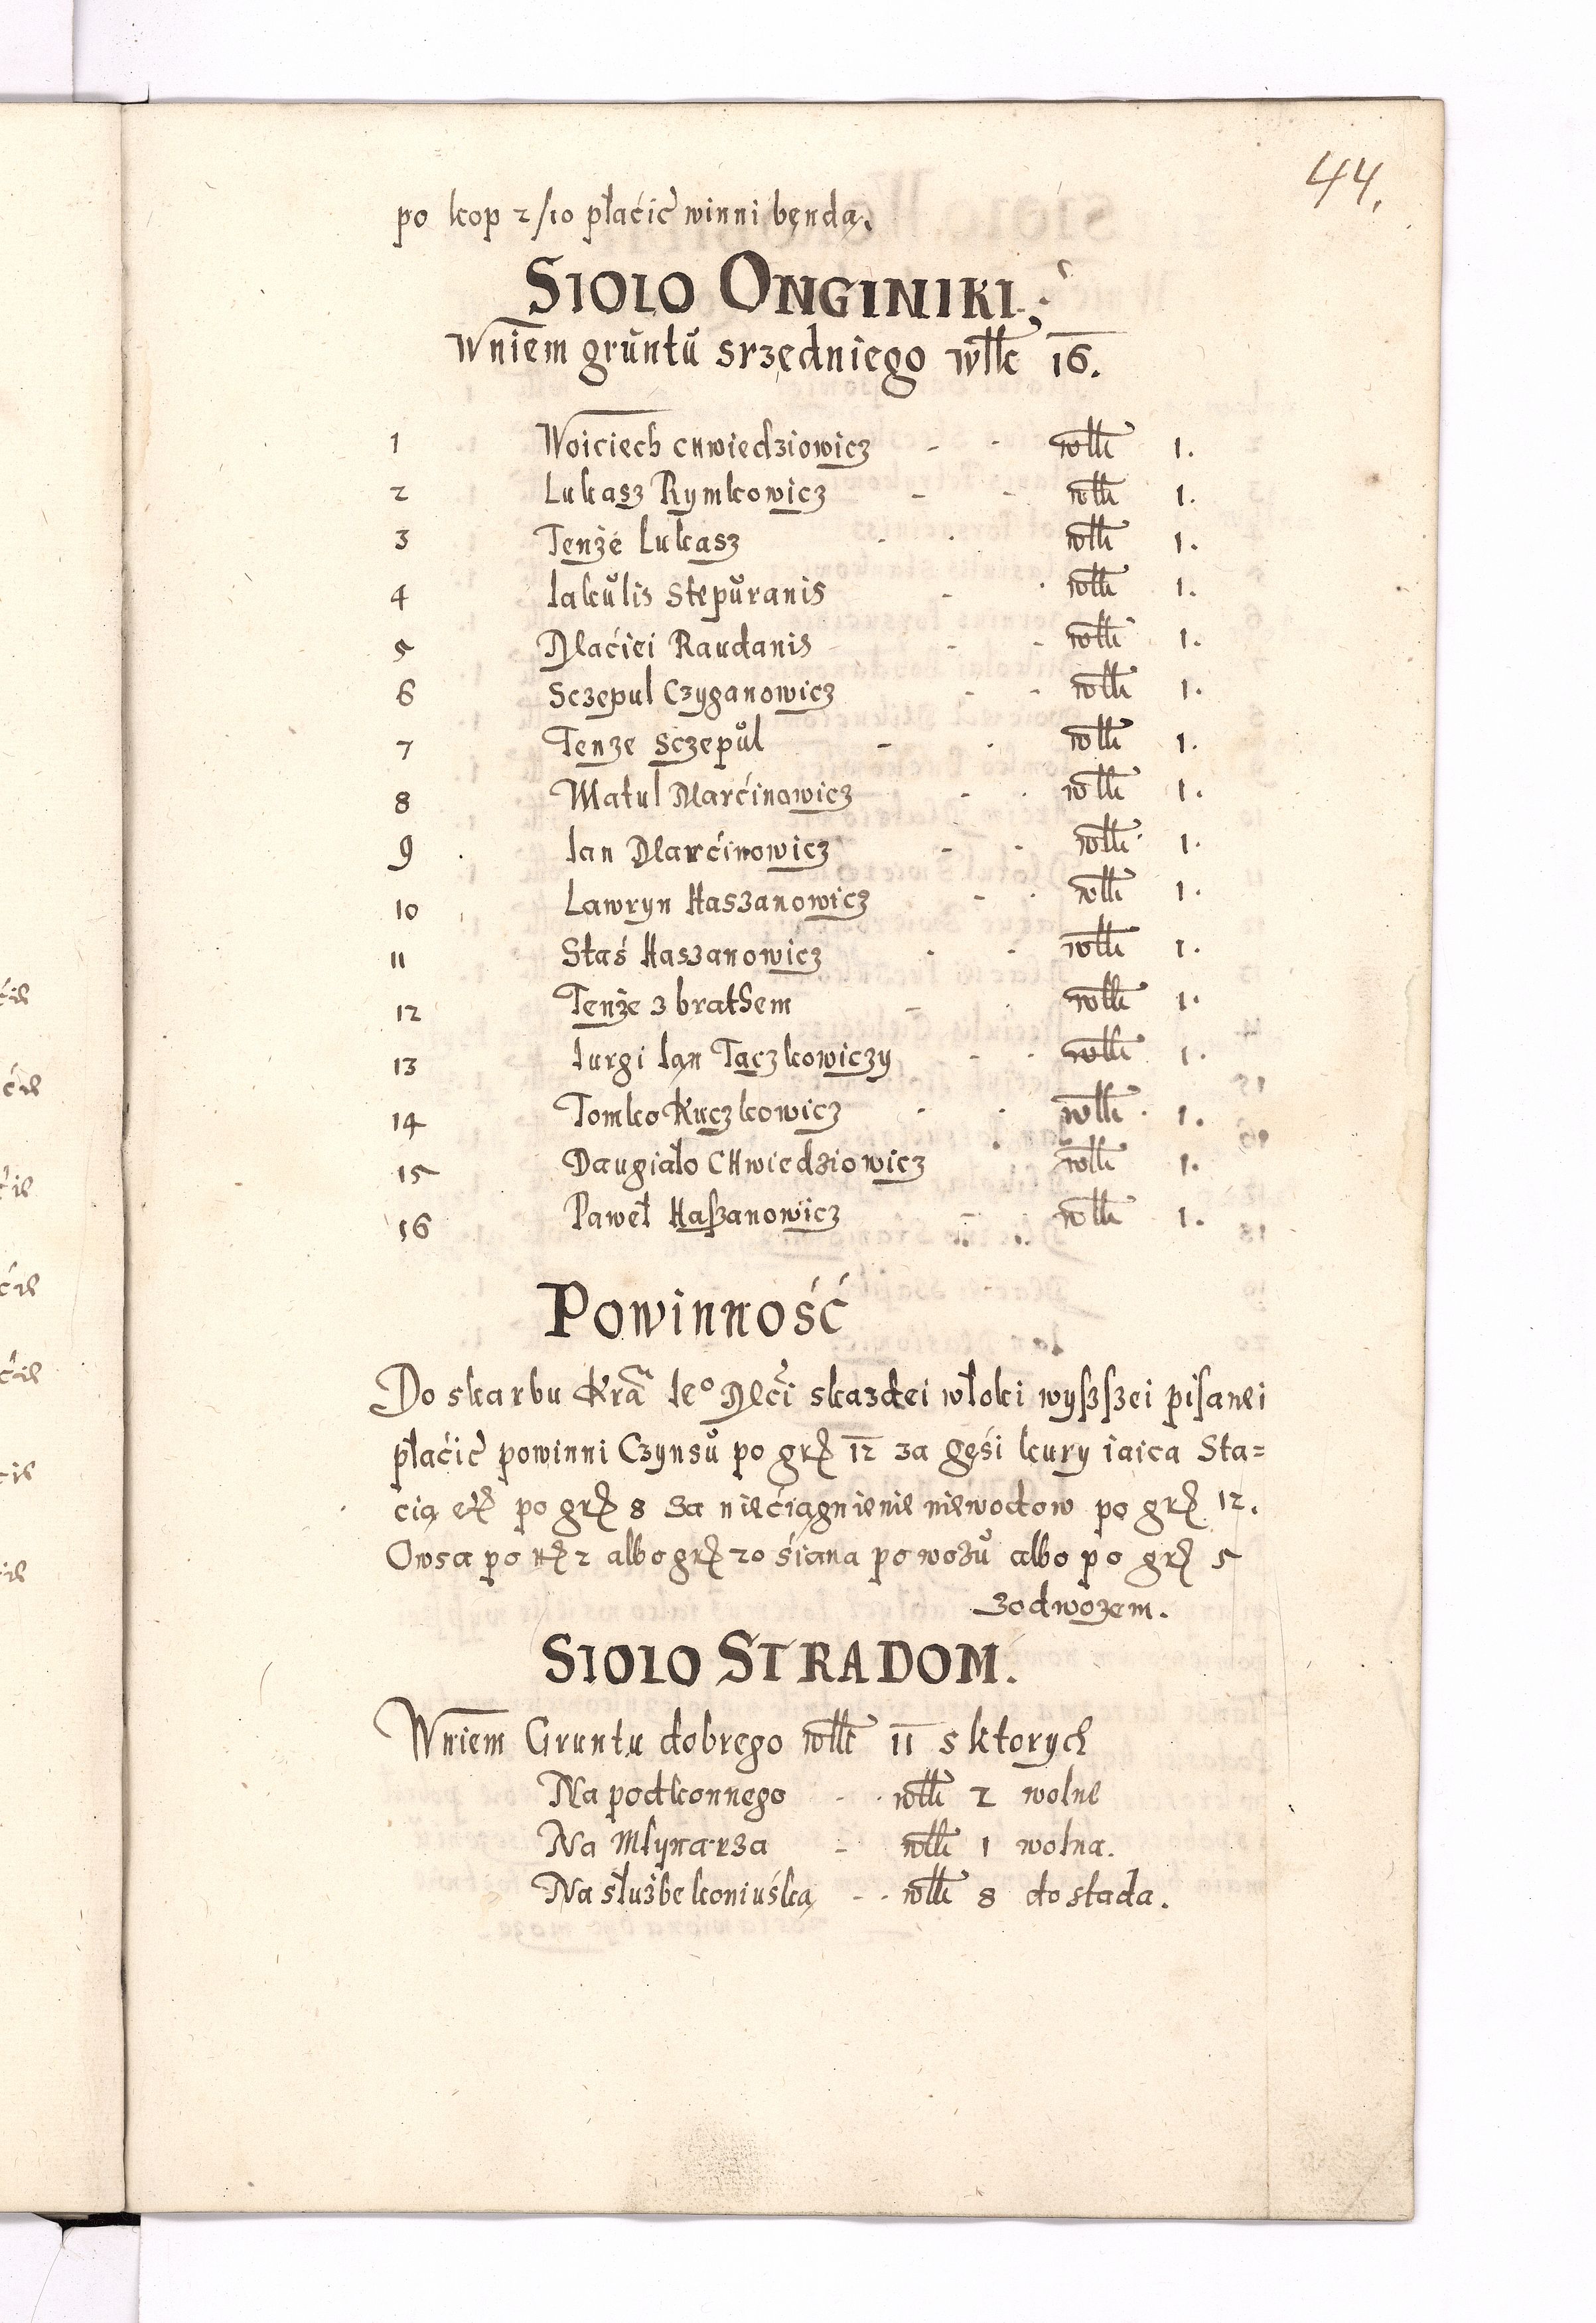 44.
po kop 2/10 płaćić winni bęndą.
SIOLO ONGINIKI.
W niem gruntu srzędniego włk 16.
1 Woiciech Chwiedziowicz - - włk 1.
2 Lukasz Rymkowicz - - włk 1.
3 Tenże Lukasz - - włk 1.
4 Iakulis Stepuranis - - włk 1.
5 Maćiei Raudanis - - włk 1.
6 Sczepul Czyganowicz - - włk 1.
7 Tenze Sczepul - - włk 1.
8 Matul Marćinowicz - - włk 1.
9 Ian Marćinowicz - - włk 1.
10 Lawryn Haszanowicz - - włk 1.
11 Staś Haszanowicz - - włk 1.
12 Tenże z bratem - - włk 1.
13 Iurgi Ian Taczkowiczy - - włk 1.
14 Tomko Kuczkowicz - - włk 1.
15 Daugiało Chwiedziowicz włk 1.
16 Paweł Haszanowicz - - włk 1.
POWINNOŚĆ
Do skarbu Kra Ieo Mći skazdei włoki wyſzſzei piſanei
płaćić powinni Czynsu po gr 12 za gęśi kury iaica Sta=
cią etc po gr 8 za niećiągnienie niewodow po gr 12.
Owsa po 2 albo gr 20 śiana po wozu albo po gr 5
zodwozem.
SIOLO STRADOM.
W niem Gruntu dobrego włk 11 s ktorych
Na podkonnego - - włk 2 wolne
Na Młynarza - włk 1 wolna.
Na służbe koniuśką - - włk 8 do stada.